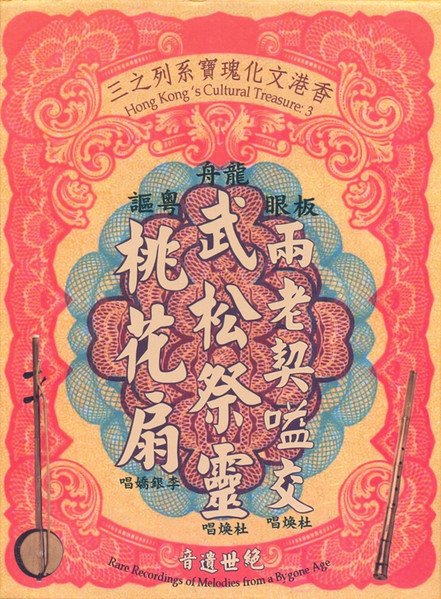 香港文化瑰寶系列之三
Hong Kong's Cultural Treasure: 3
板眼
兩老契嗌交
杜煥唱
龍舟
武松祭靈
杜煥唱
粵謳
桃花扇
李銀嬌唱
絕世遺音
Rare Recordings of Melodies from a Bygone Age